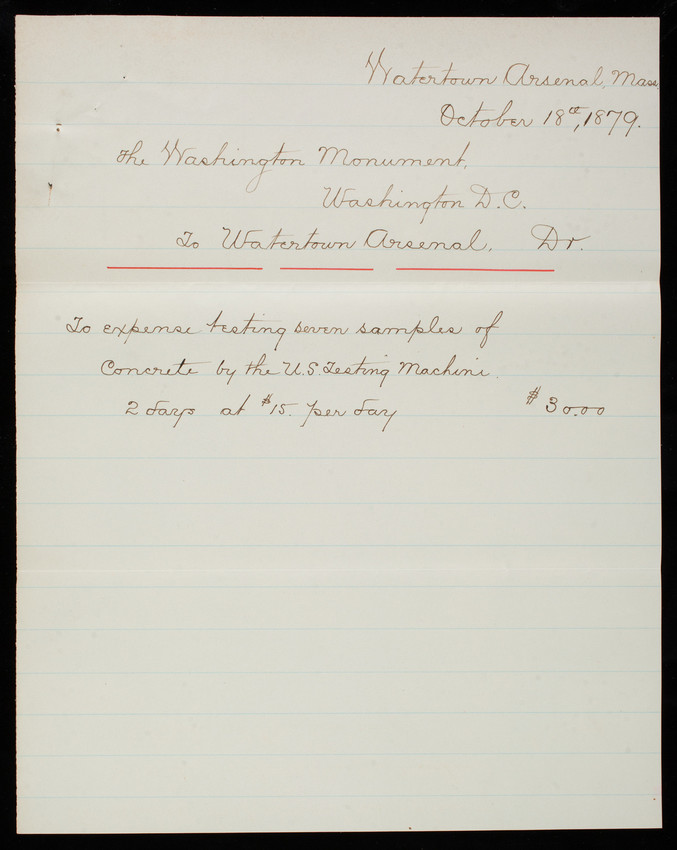 Watertown Arsenal, Mass,
October 18th, 1879.
The Washington Monument,
Washington D.C.
To Watertown Arsenal, Dr.
To expense testing seven samples of
Concrete by the U.S. Testing Machine.
2 days at $15. per day $30.00